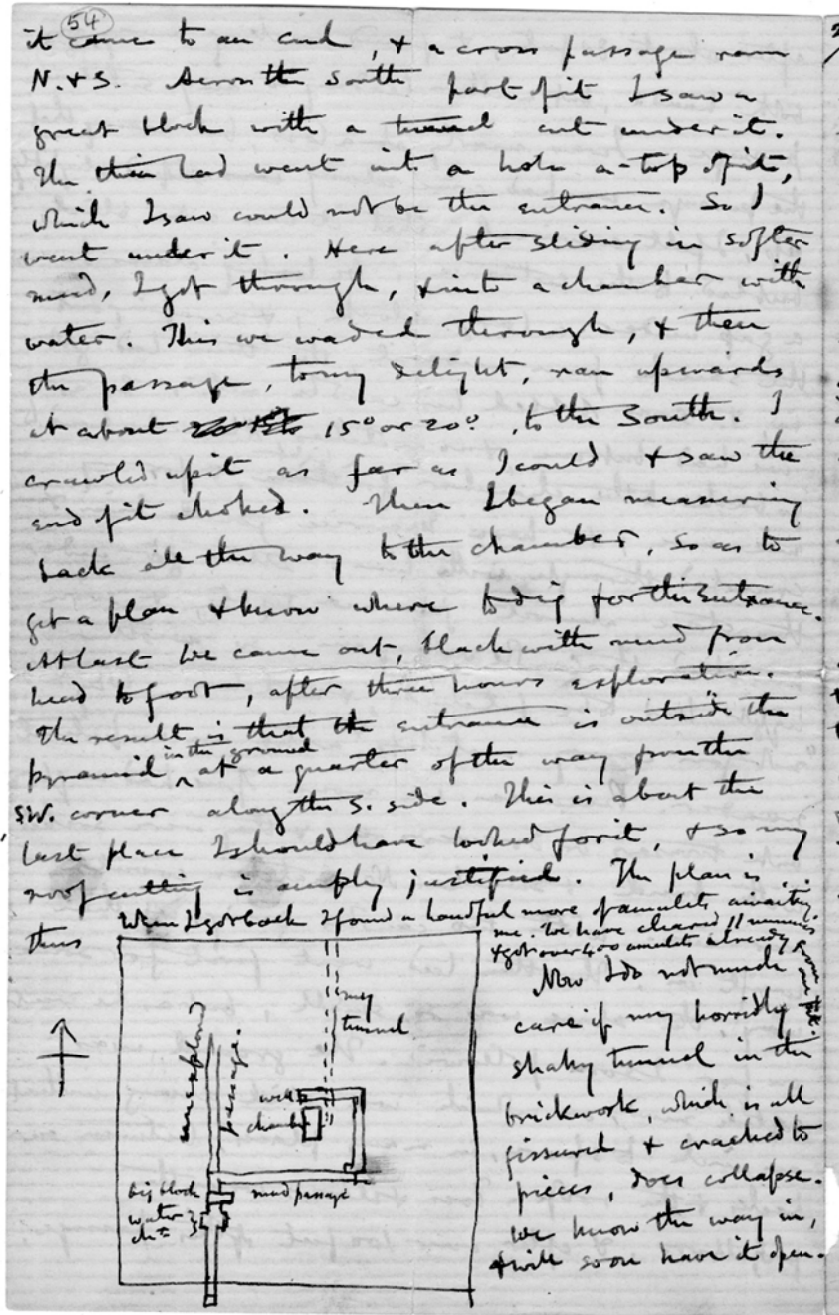 54
it came to an end, & a cross passage ran
N. & S. Across the South part of it I saw a
great block with a tunnel cut under it.
The thin lad went into a hole a-top of it,
which I saw could not be the entrance. So I
went under it. Here after sliding in softer
mud, I got through, & into a chamber with
water. This we waded through, & then
the passage, to my delight, ran upwards
at about 15° or 20°, to the South. I
crawled up it as far as I could & saw the
end of it choked. Then I began measuring
back all the way to the chamber, so as to
get a plan & know where to dig for the entrance.
At last we came out, black with mud from
head to foot, after three hours exploration.
The result is that the entrance is outside the
pyramid in the ground at a quarter of the way from the
SW. corner along the S. side. This is about the
last place I should have looked for it, & so my
roof cutting is amply justified. The plan is
thus
When I got back I found a handful more of amulets awaiting
me. We have cleared 11 mummies
& got over 400 amulets already
Now I do not much
care if my horridly
shaky tunnel in the
brickwork, which is all
fissured & cracked to
pieces, does collapse.
We know the way in,
& will soon have it open.
my
tunnel
unexplored
passage.
well
chamber
big block
mud passage
water
chr